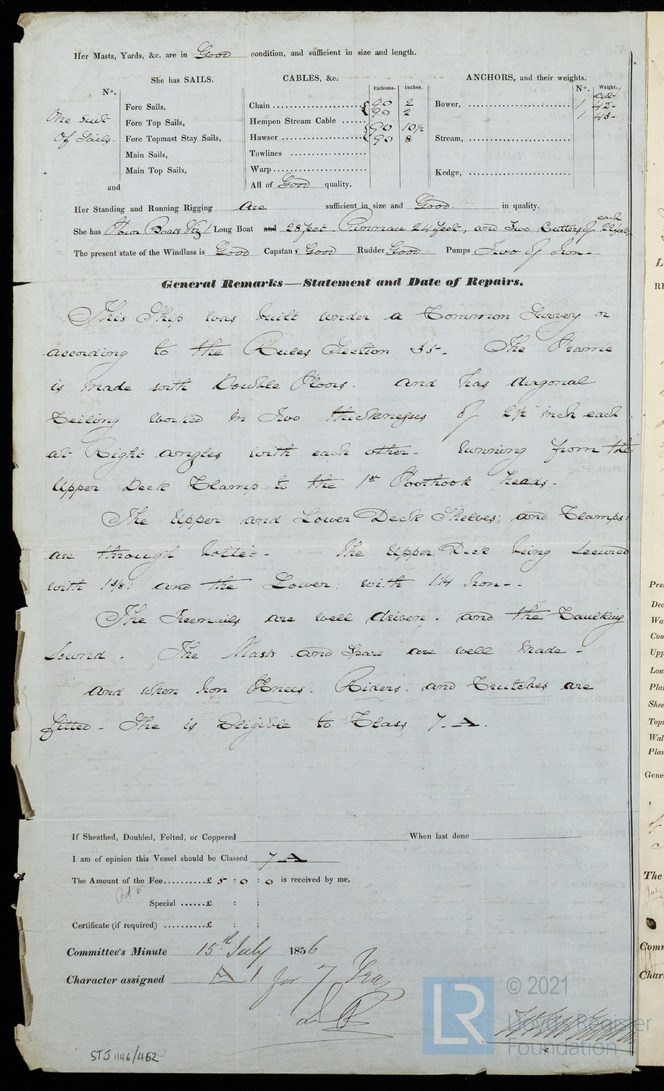 Her Masts, Yards, &c. are in Good condition, and sufficient in size and length.
She has SAILS.
No.
One Suit
Of Sails
Fore Sails,
Fore Top Sails,
Fore Topmast Stay Sails,
Main Sails,
Main Top Sails,
and
CABLES, &c.
Fathoms. Inches.
Chain 90 2
90 2
Hempen Stream Cable
90 10½
Hawser 90 8
Towlines
Warp
All of Good quality.
ANCHORS, and their weights.
No. Weight.
Cwt
Bower, 1 42
1 43
Stream,
Kedge,
Her Standing and Running Rigging are sufficient in size and Good in quality.
She has Four Boats Viz Long Boat and 28 feet Pinnace 24 feet, and Two Cutters of each 22 feet
The present state of the Windlass is Good Capstan Good Rudder Good Pumps Two of Iron
General Remarks—Statement and Date of Repairs.
This Ship was built under a Common Survey or
according to the Rules Section 35. The Frame
is made with Double Floors. and has diagonal
Ceiling worked in Two thicknesses of 2½ inch each
at Right angles with each other. running from the
Upper Deck Clamp to the 1st Foothook heads.
The Upper and Lower Deck Shelves; and Clamps
are through bolted. The Upper Deck being secured
with 1⅛: and the Lower: with 1¼ Iron.
The Treenails are well driven. and the Caulking
Sound. The Masts and Spars are well made.
and when Iron Knees. Riders. and Crutches are
fitted. She is Eligible to Class 7 A.
If Sheathed, Doubled, Felted, or Coppered When last done
I am of opinion this Vessel should be Classed 7 A
The Amount of the Fee..........£ 5 : 0 : 0 is received by me,
Special ......£ : :
Certificate (if required) ......£ : :
Committee's Minute 15th July 1856
Character assigned A 1 for 7 Years
STJ 1146/462
LR
© 2021
Lloyd's Register
Foundation